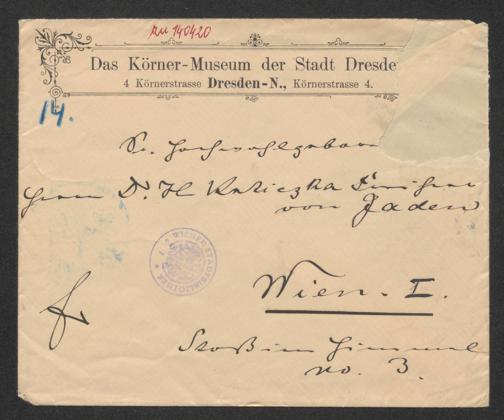 zu 140420
Das Körner-Museum der Stadt Dresde
4 Körnerstrasse Dresden-N., Körnerstrasse 4.
14.
Sr. Hochwohlgeboren
Herrn Dr. H. K. Freiherr
von Jaden
WIENER STADTBIBLIOTHEK
Wien - I.
Stoß im Himmel
no. 3.